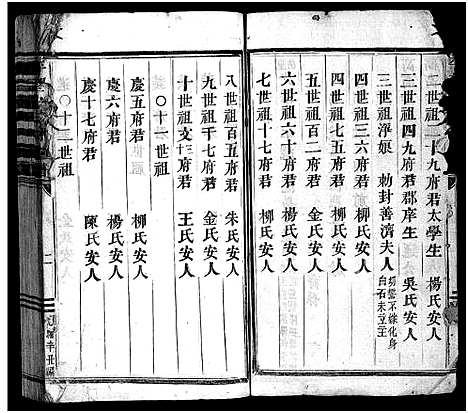 二世祖二十九府君太學生　楊氏安人
三世祖四九府君郡庠生　吳氏安人
三世祖淨娘　勅封善濟夫人
四世祖三六府君　柳氏安人
四世祖七五府君　柳氏安人
五世祖百二府君　金氏安人
六世祖六十府君　楊氏安人
七世祖十七府君　柳氏安人
八世祖百五府君　朱氏安人
九世祖千七府君　金氏安人
十世祖文十三府君　王氏安人
〇十一世祖
慶五府君　柳氏安人
慶六府君　楊氏安人
慶十七府君　陳氏安人
〇十二世祖
二